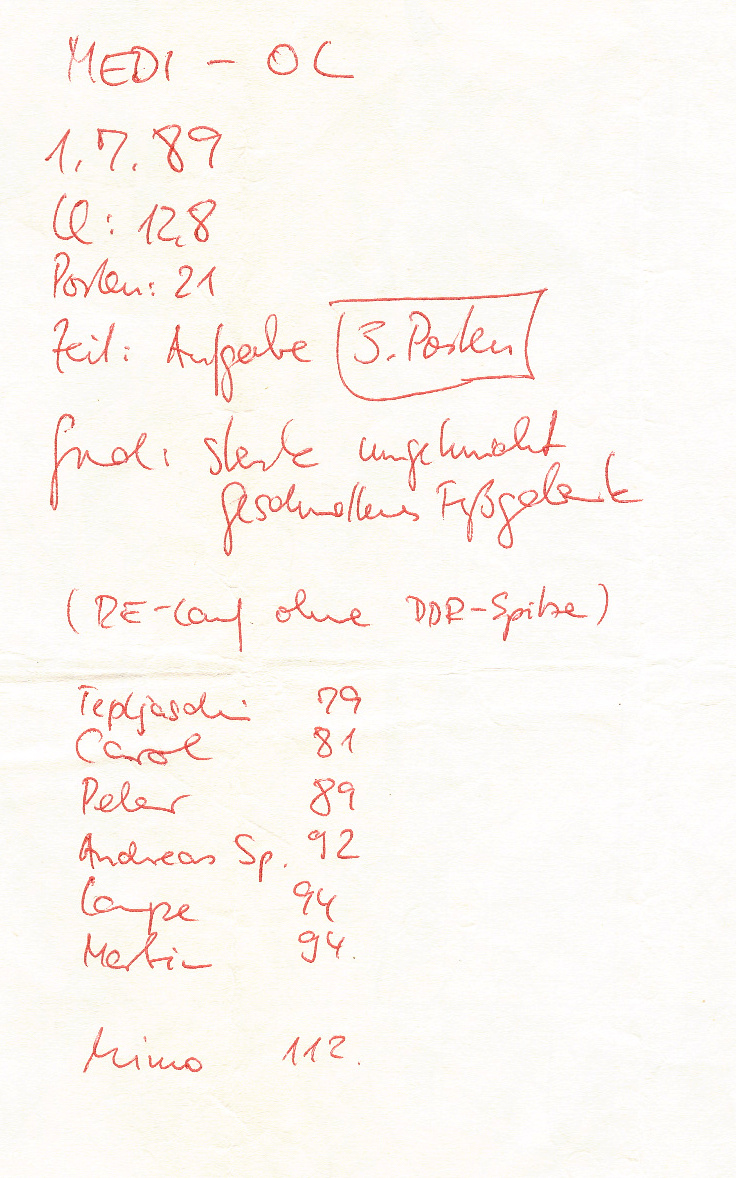 MEDI - OL
1.7.89
LL: 12,8
Posten: 21
Zeit: Aufgabe 3. Posten
Grund: stark umgeknickt
geschwollenes Fußgelenk
(RE-Lauf ohne DDR-Spitze)
79
Carol 81
Peter 89
Andreas Sp. 92
Lampe 94
Martin 94.
Mimo 112.